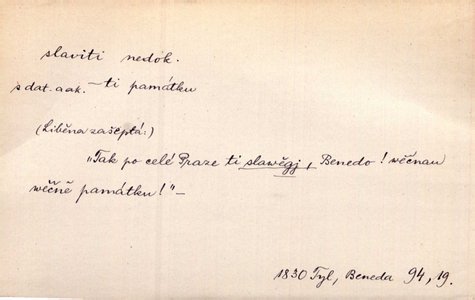 slaviti nedok.
s dat. a ak. – ti památku
(Liběna zašeptá:)
"Tak po celé Praze ti slawěgj, Benedo! wěčnau
wěčně památku!" –
1830 Tyl, Beneda 94, 19.